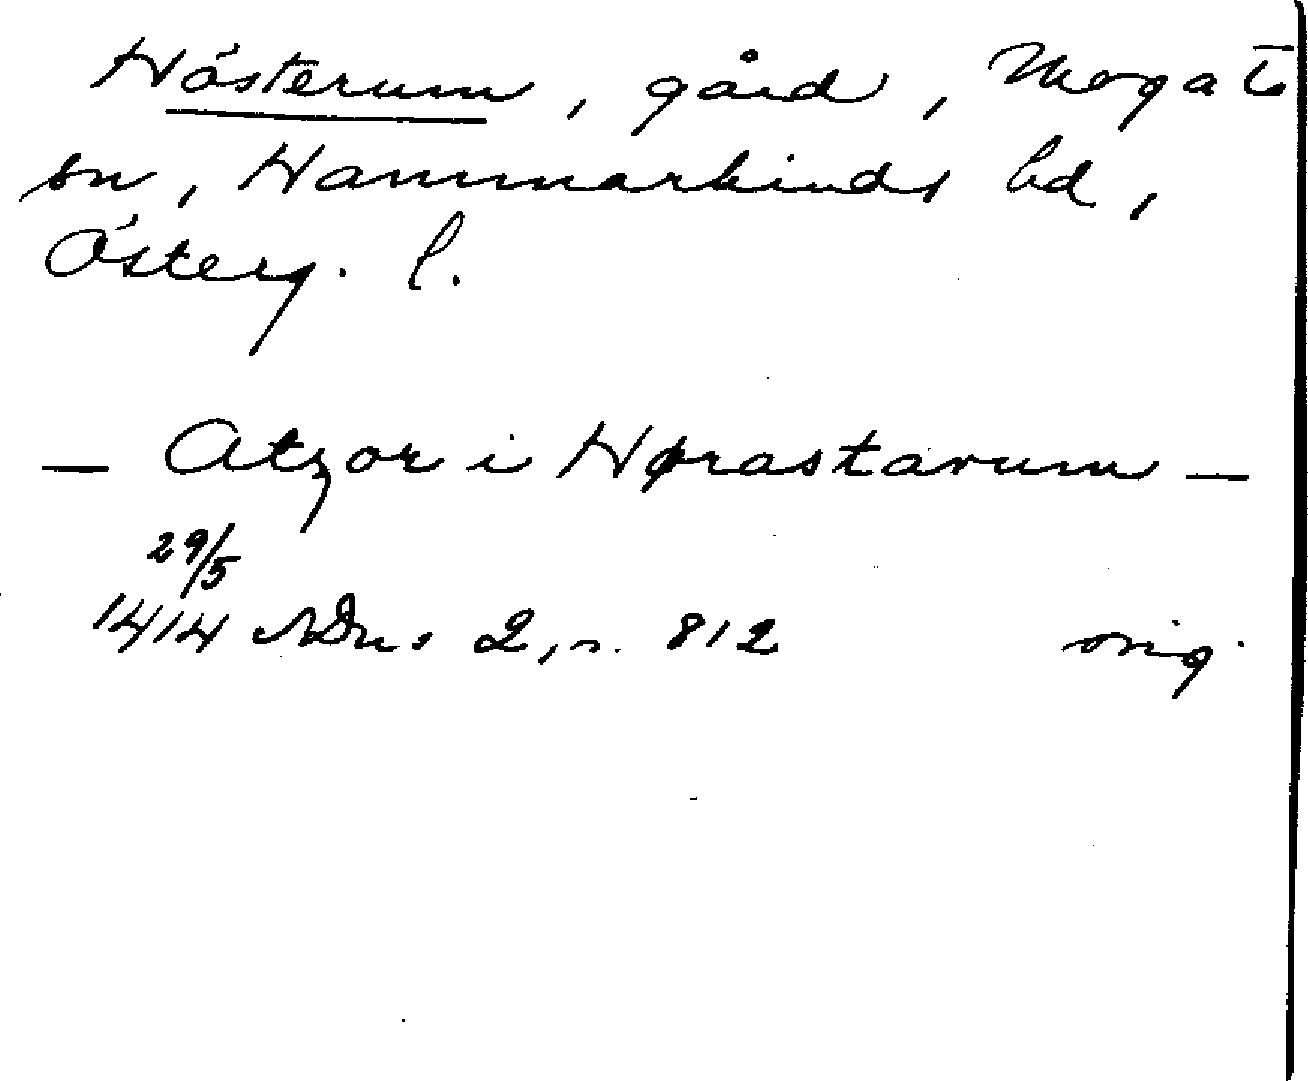 Hösterum, gård, Mogata
sn, Hammarkinds hd,
Österg. l.
— Atzor i Hørastarum —
29/5
1414 SDns 2, s. 812 orig.